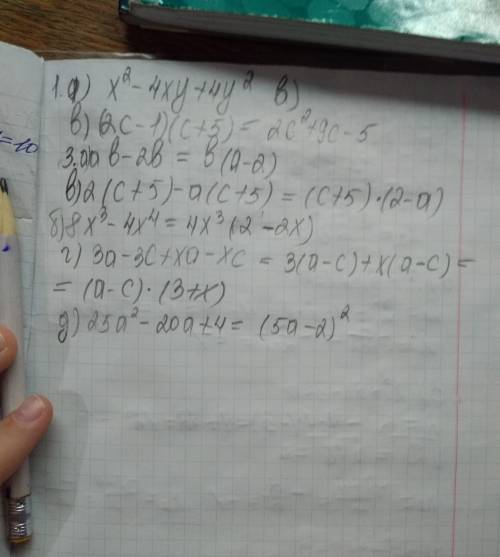 1. а) x² - 4xy + 4y² в)
в) (2c-1)(c+5) = 2c²+9c-5
=10
3. а) ab - 2b = b(a-2)
в) 2(c+5)-a(c+5) = (c+5)·(2-a)
б) 8x³ - 4x⁴ = 4x³(2 - 2x)
г) 3a-3c+xa-xc = 3(a-c)+x(a-c)=
= (a-c)·(3+x)
д) 25a² - 20a+4 = (5a-2)²